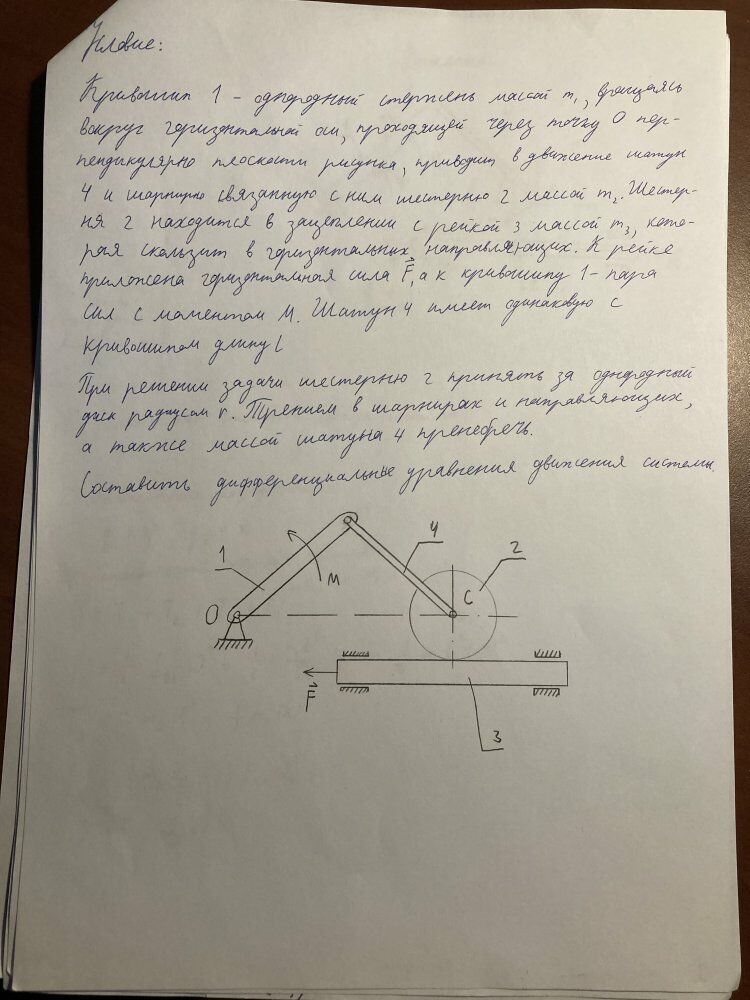 Условие:
Кривошип 1 - однородный стержень массой m₁, вращаясь
вокруг горизонтальной оси, проходящей через точку О пер-
пендикулярно плоскости рисунка, приводит в движение шатун
4 и шарнирно связанную с ним шестерню 2 массой m₂. Шестер-
ня 2 находится в зацеплении с рейкой 3 массой m₃, кото-
рая скользит в горизонтальных направляющих. К рейке
приложена горизонтальная сила F, а к кривошипу 1 - пара
сил с моментом М. Шатун 4 имеет одинаковую с
кривошипом длину l
При решении задачи шестерню 2 принять за однородный
диск радиусом r. Трением в шарнирах и направляющих,
а также массой шатуна 4 пренебречь.
Составить дифференциальные уравнения движения системы.
1
4
2
M
O
C
F
3